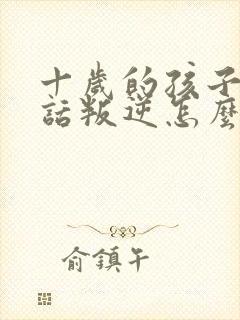 十歲的孩子
話叛逆怎麼
俞鎮午